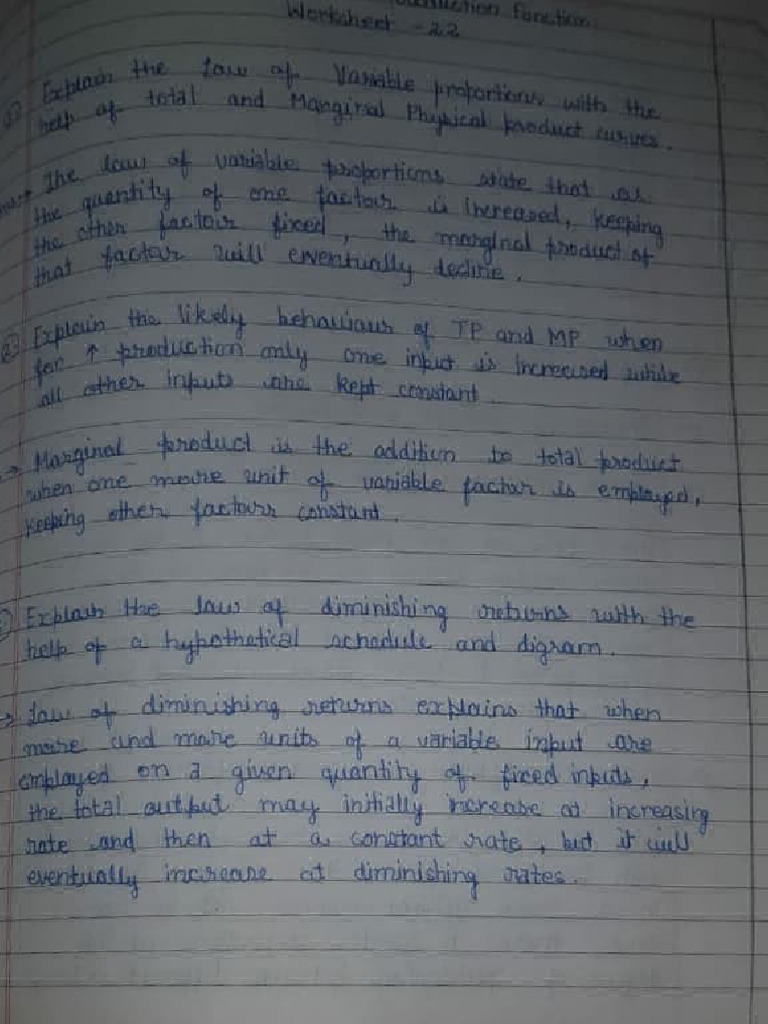 Function
Worksheet - 22
Explain the law of Variable proportions with the
help of total and Marginal Physical product curves.
The law of variable proportions state that as
the quantity of one factor is increased, keeping
the other factor fixed, the marginal product of
that factor will eventually decline.
Explain the likely behaviour of TP and MP when
for ↑ production only one input is increased while
all other inputs are kept constant.
→ Marginal product is the addition to total product
when one more unit of variable factor is employed,
keeping other factors constant.
Explain the law of diminishing returns with the
help of a hypothetical schedule and digram.
→ Law of diminishing returns explains that when
more and more units of a variable input are
employed on a given quantity of fixed inputs,
the total output may initially increase at increasing
rate and then at a constant rate, but it will
eventually increase at diminishing rates.